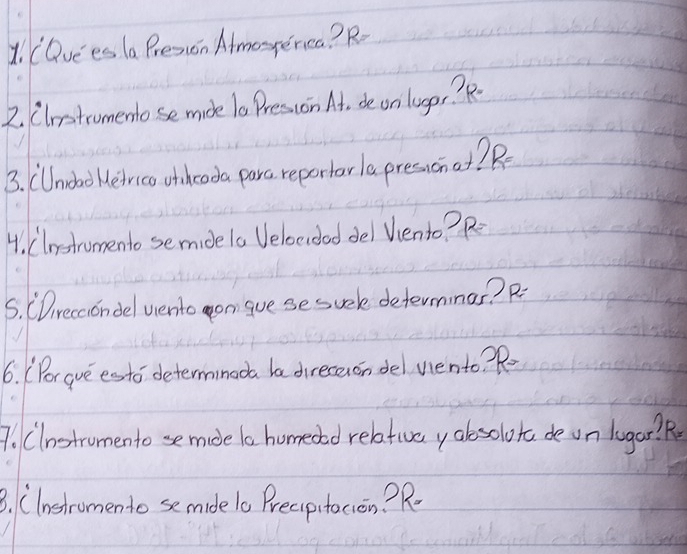 1. ¿Qué es la Presión Atmospérica? R=
2. ¿Instrumento se mide la Presión At. de un lugar? R=
3. ¿Unidad Métrica utilicada para reportar la presión at? R=
4. ¿Instrumento se mide la Velocidad del Viento? R=
5. ¿Dirección del viento con que se suele determinar? R=
6. ¿Por qué está determinada la dirección del viento? R=
7. ¿Instrumento se mide la humedad relativa y absoluta de un lugar? R=
8. ¿Instrumento se mide la Precipitación? R=